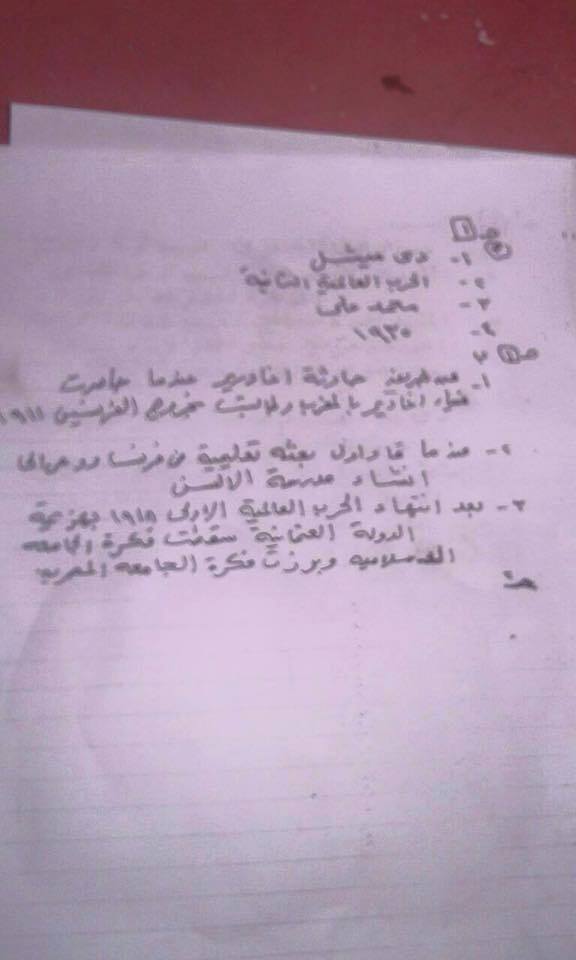 ج ١
١- دى ميشل
٢- الحرب العالمية الثانية
٣- محمد على
٤- ١٩٣٥
١- عن طريق حادثة اغادير عندما حاصرت
ميناء اغادير بالمغرب وطالبت بخروج الفرنسين ١٩١١
٢- عندما قاد اول بعثه تعليمية من فرنسا ودعى الى
انشاء مدرسة الالسن
٣- بعد انتهاء الحرب العالمية الاولى ١٩١٨ بهزيمة
الدولة العثمانية سقطت فكرة الجامعه
الاسلاميه وبرزت فكرة الجامعه العربيه